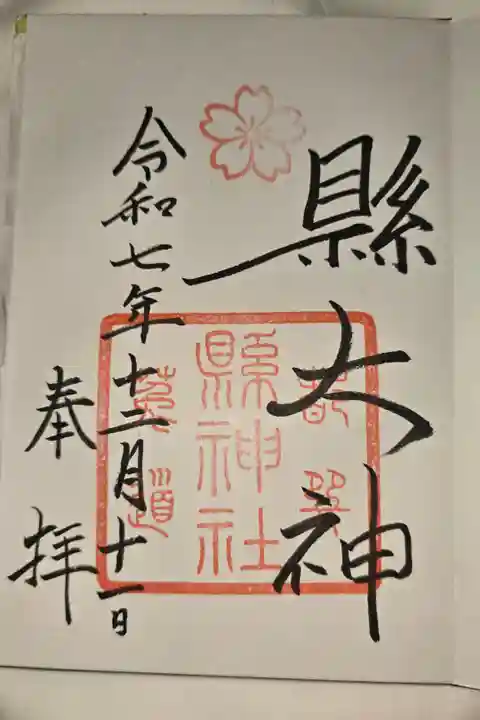 縣大神
都巽
縣神社
菟道
令和七年十二月十一日
奉拝